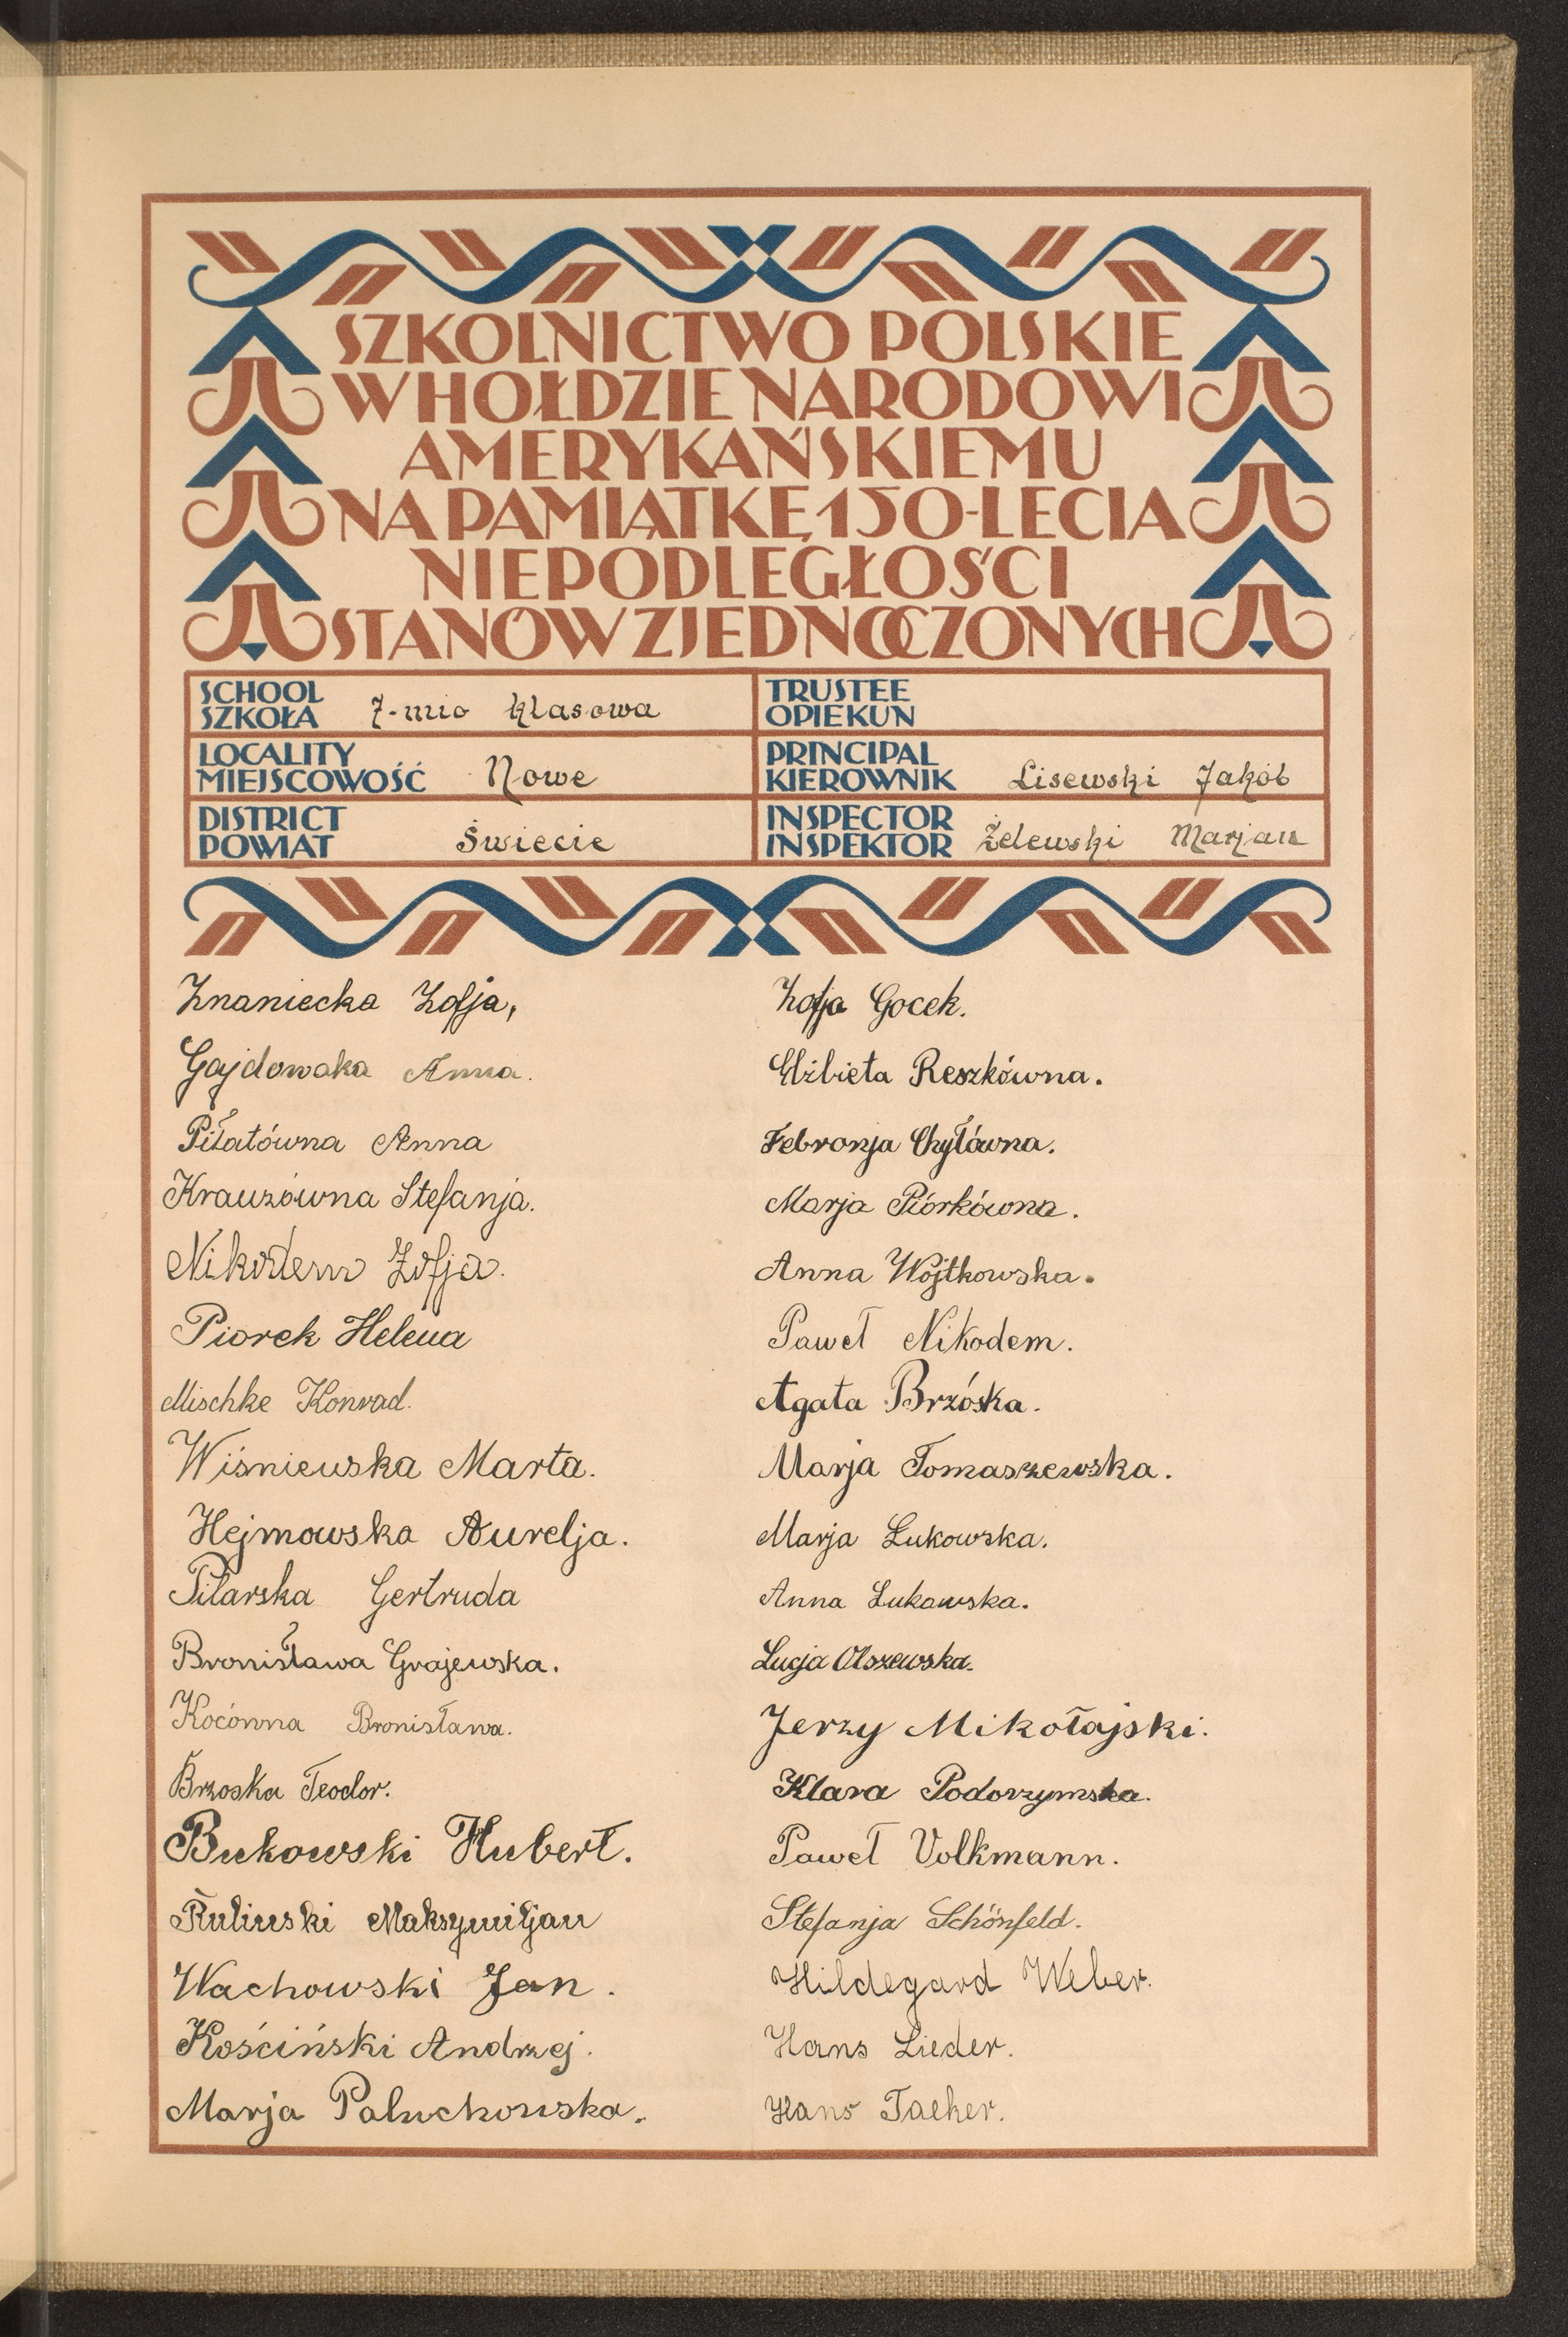 SZKOLNICTWO POLSKIE
W HOŁDZIE NARODOWI
AMERYKAŃSKIEMU
NA PAMIĄTKĘ 150-LECIA
NIEPODLEGŁOŚCI
STANÓW ZJEDNOCZONYCH
SCHOOL
SZKOŁA 7-mio klasowa
TRUSTEE
OPIEKUN
LOCALITY
MIEJSCOWOŚĆ Nowe
PRINCIPAL
KIEROWNIK Lisewski Jakób
DISTRICT
POWIAT Świecie
INSPECTOR
INSPEKTOR Żelewski Marjan
Znaniecka Zofja,
Gajdowska Anna.
Piłatówna Anna
Krauzówna Stefanja.
Nikodem Zofja.
Piorek Helena
Mischke Konrad.
Wiśniewska Marta.
Hejmowska Aurelja.
Pilarska Gertruda
Bronisława Grajewska.
Kocówna Bronisława.
Brzoska Teodor.
Bukowski Hubert.
Ruliński Maksymiljan
Wachowski Jan.
Kościński Andrzej.
Marja Paluchowska.
Zofja Gocek.
Elżbieta Reszkówna.
Febronja Chyłówna.
Marja Piórkówna.
Anna Wojtkowska.
Paweł Nikodem.
Agata Brzóska.
Marja Tomaszewska.
Marja Łukowska.
Anna Łukowska.
Łucja Olszewska.
Jerzy Mikołajski.
Klara Podorzymska.
Paweł Volkmann.
Stefanja Schönfeld.
Hildegard Weber.
Hans Lieder.
Hans